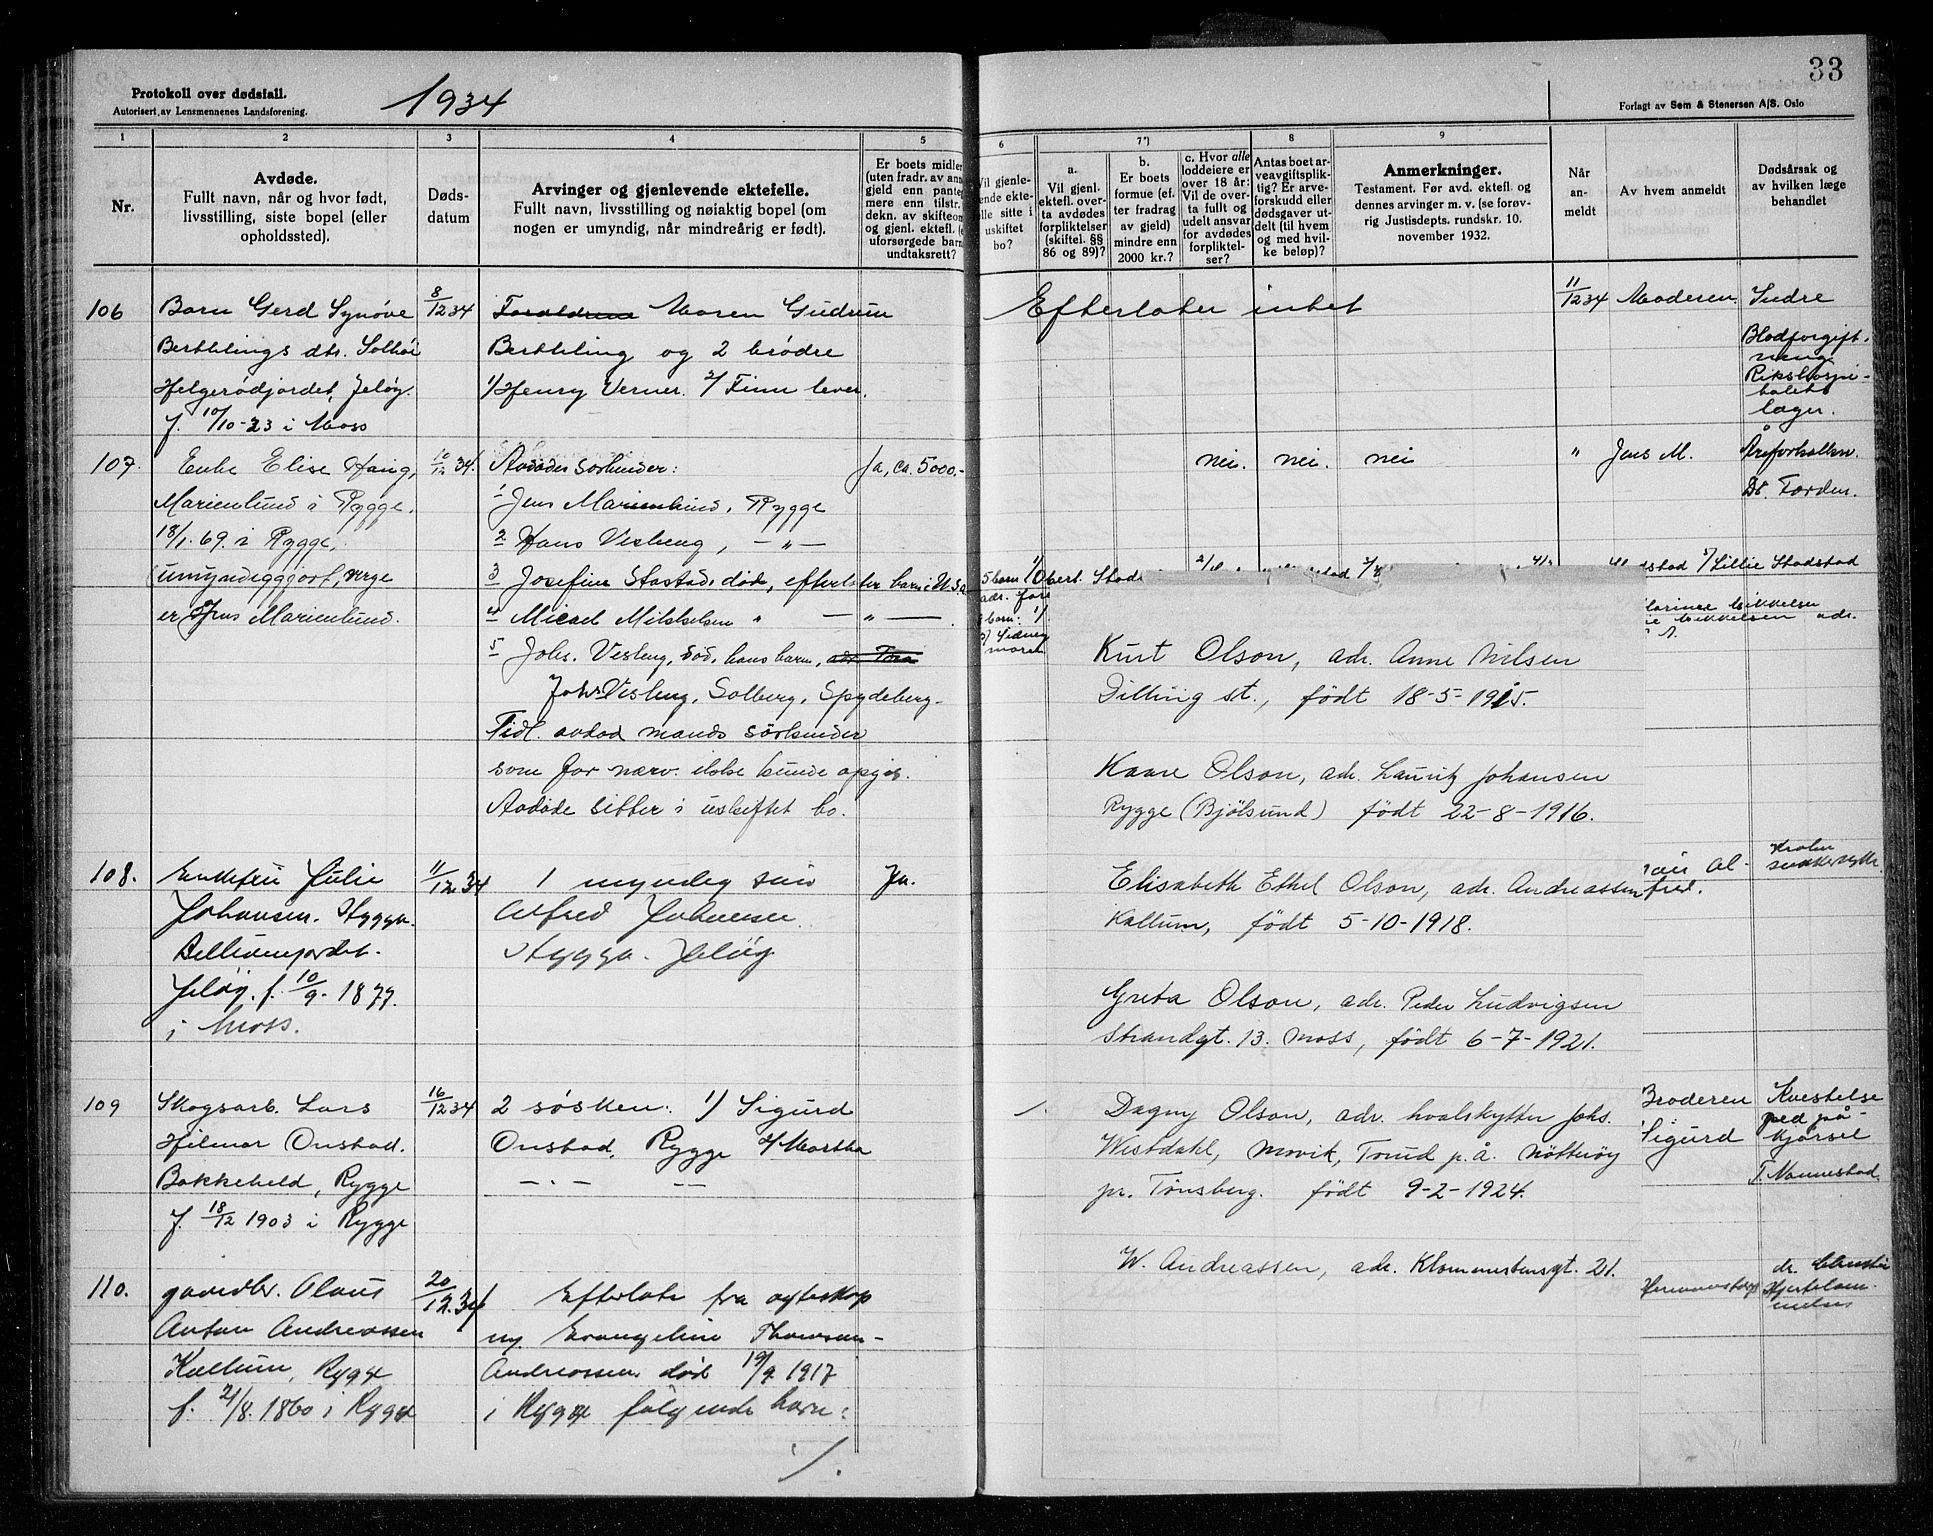 Protokoll over dødsfall.
Autorisert av Lensmennenes Landsforening.
1934
33
Forlagt av Sem & Stenersen A/S. Oslo
1 2 3 4 5 6 7*) 8 9
Nr.
Avdøde.
Fullt navn, når og hvor født,
livsstilling, siste bopel (eller
opholdssted).
Døds-
datum
Arvinger og gjenlevende ektefelle.
Fullt navn, livsstilling og nøiaktig bopel (om
nogen er umyndig, når mindreårig er født).
Er boets midler
(uten fradr. av ann
gjeld enn pante
mere enn tilstr.
dekn. av skifteom
og gjenl. ektefl. (e
uforsørgede barn
undtaksrett?
Vil gjenle-
ende ekte-
lle sitte i
uskiftet
bo?
a.
Vil gjenl.
ektefl. over-
ta avdødes
forpliktelser
(skiftel. §§
86 og 89)?
b.
Er boets
formue (ef-
ter fradrag
av gjeld)
mindre enn
2000 kr.?
c. Hvor alle
loddeiere er
over 18 år:
Vil de over-
ta fullt og
udelt ansvar
for avdødes
forpliktel-
ser?
Antas boet ar-
veavgiftsplik-
tig? Er arve-
forskudd eller
dødsgaver ut-
delt (til hvem
og med hvil-
ke beløp)?
Anmerkninger.
Testament. Før avd. ektefl. og
dennes arvinger m. v. (se forøv-
rig Justisdepts. rundskr. 10.
november 1932.
Når
an-
meldt
Av hvem anmeldt
Dødsårsak og
av hvilken læge
behandlet
106
Barn Gerd Synöve
Berthlings dtr. Solhöi
Helgerödjordet, Jelöy.
f. 10/10-23 i Moss
8/12 34
Foreldrene Maren Gudrun
Berthling og 2 brödre
1/ Henry Verner. 2/ Finn lever.
Efterlater intet
11/12 34
Moderen
Indre
Blodforgift-
ning
Rikshospi-
talets
læger.
107.
Enke Elise Haug,
Marienlund i Rygge,
18/1. 69. i Rygge,
umyndiggjort, verge
er Jens Marienlund.
10/12 34.
Avdödes söskender:
1 Jens Marienlund, Rygge
2 Hans Visberg, — " —
3 Josefine Stastad, död, efterlater barn i U.S.A
4 Micael Mikkelsen " — " —
5 Johs. Visberg, död, hans barn, adr. Tora
Johs Visberg, Solberg, Spydeberg.
Tidl. avdöd mands söskender
som for nærv. ikke kunde opgis.
Avdöde sitter i uskiftet bo.
Ja, ca. 5000.-
nei. nei. nei
"
Jens M.
Åreforkalkn.
Dr. Torden.
5 barn 1/ Obert. Stads
5/ Lillie Stadstad
108.
Enkefru Julie
Johansen. Hygga.
Jelöy. f. 10/9. 1877.
i Moss.
11/12 34
1 myndig sön
Alfred Johansen
Hygga. Jelöy
Ja.
Al-
fred.
sukkersyke
109
Skogsarb. Lars
Hilmar Onstad.
Bakkeheld, Rygge
f. 18/12 1903 i Rygge
16/12 34
2 sösken: 1) Sigurd
Onstad, Rygge 2/ Martha
— " — — —
Broderen
Sigurd
Kvestelse
ved på-
kjørsel
T. Nannestad
110.
gaardbr. Olaus
Anton Andreassen
Kallum, Rygge
f. 21/8. 1860 i Rygge
20/12. 34
Efterlot fra egteskap
m. Evangeline Thomsen-
Andreassen död 19/9 1917
i Rygge fölgende barn:
./.
Kurt Olson, adr. Anne Nilsen
Dilling st., født 18-5-1915.
Kaare Olson, adr. Lauritz Johansen
Rygge (Bjölsund) født 22-8-1916.
Elisabeth Ethel Olson, adr. Andreassen
Kallum, født 5-10-1918.
Greta Olson, adr. Peder Ludvigsen
Strandgt. 13. Moss, født 6-7-1921.
Dagny Olson, adr. hvalskytter Johs.
Westdahl, Movik, Torud p.å. Nötteröy
pr. Tönsberg. født 9-2-1924.
W. Andreassen, adr. Klommestensgt. 21.